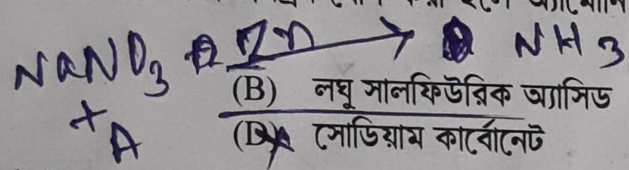 NaNO3 Zn → NH3
+ A
(B) লঘু সালফিউরিক অ্যাসিড
(D) সোডিয়াম কার্বোনেট